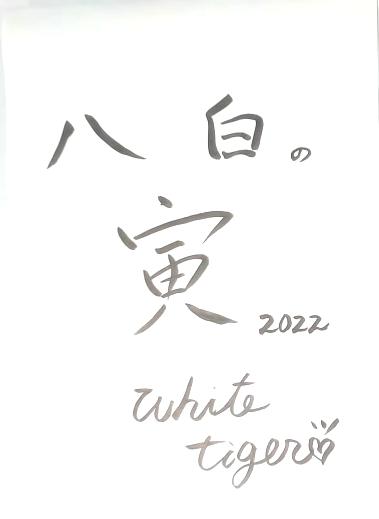 八白の
寅 2022
White
tiger♡